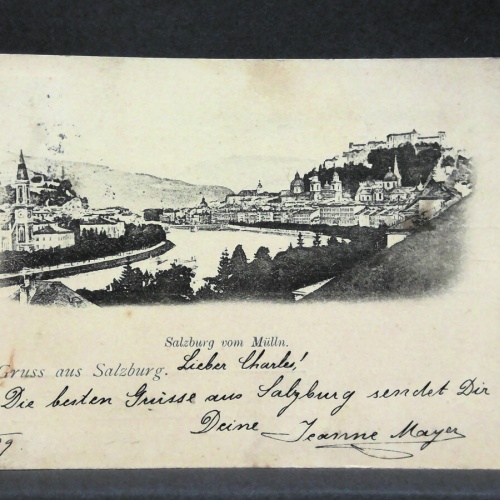 Salzburg vom Mülln.
Gruss aus Salzburg. Lieber Charles!
Die besten Grüsse aus Salzburg sendet Dir
Deine Jeanne Mayer